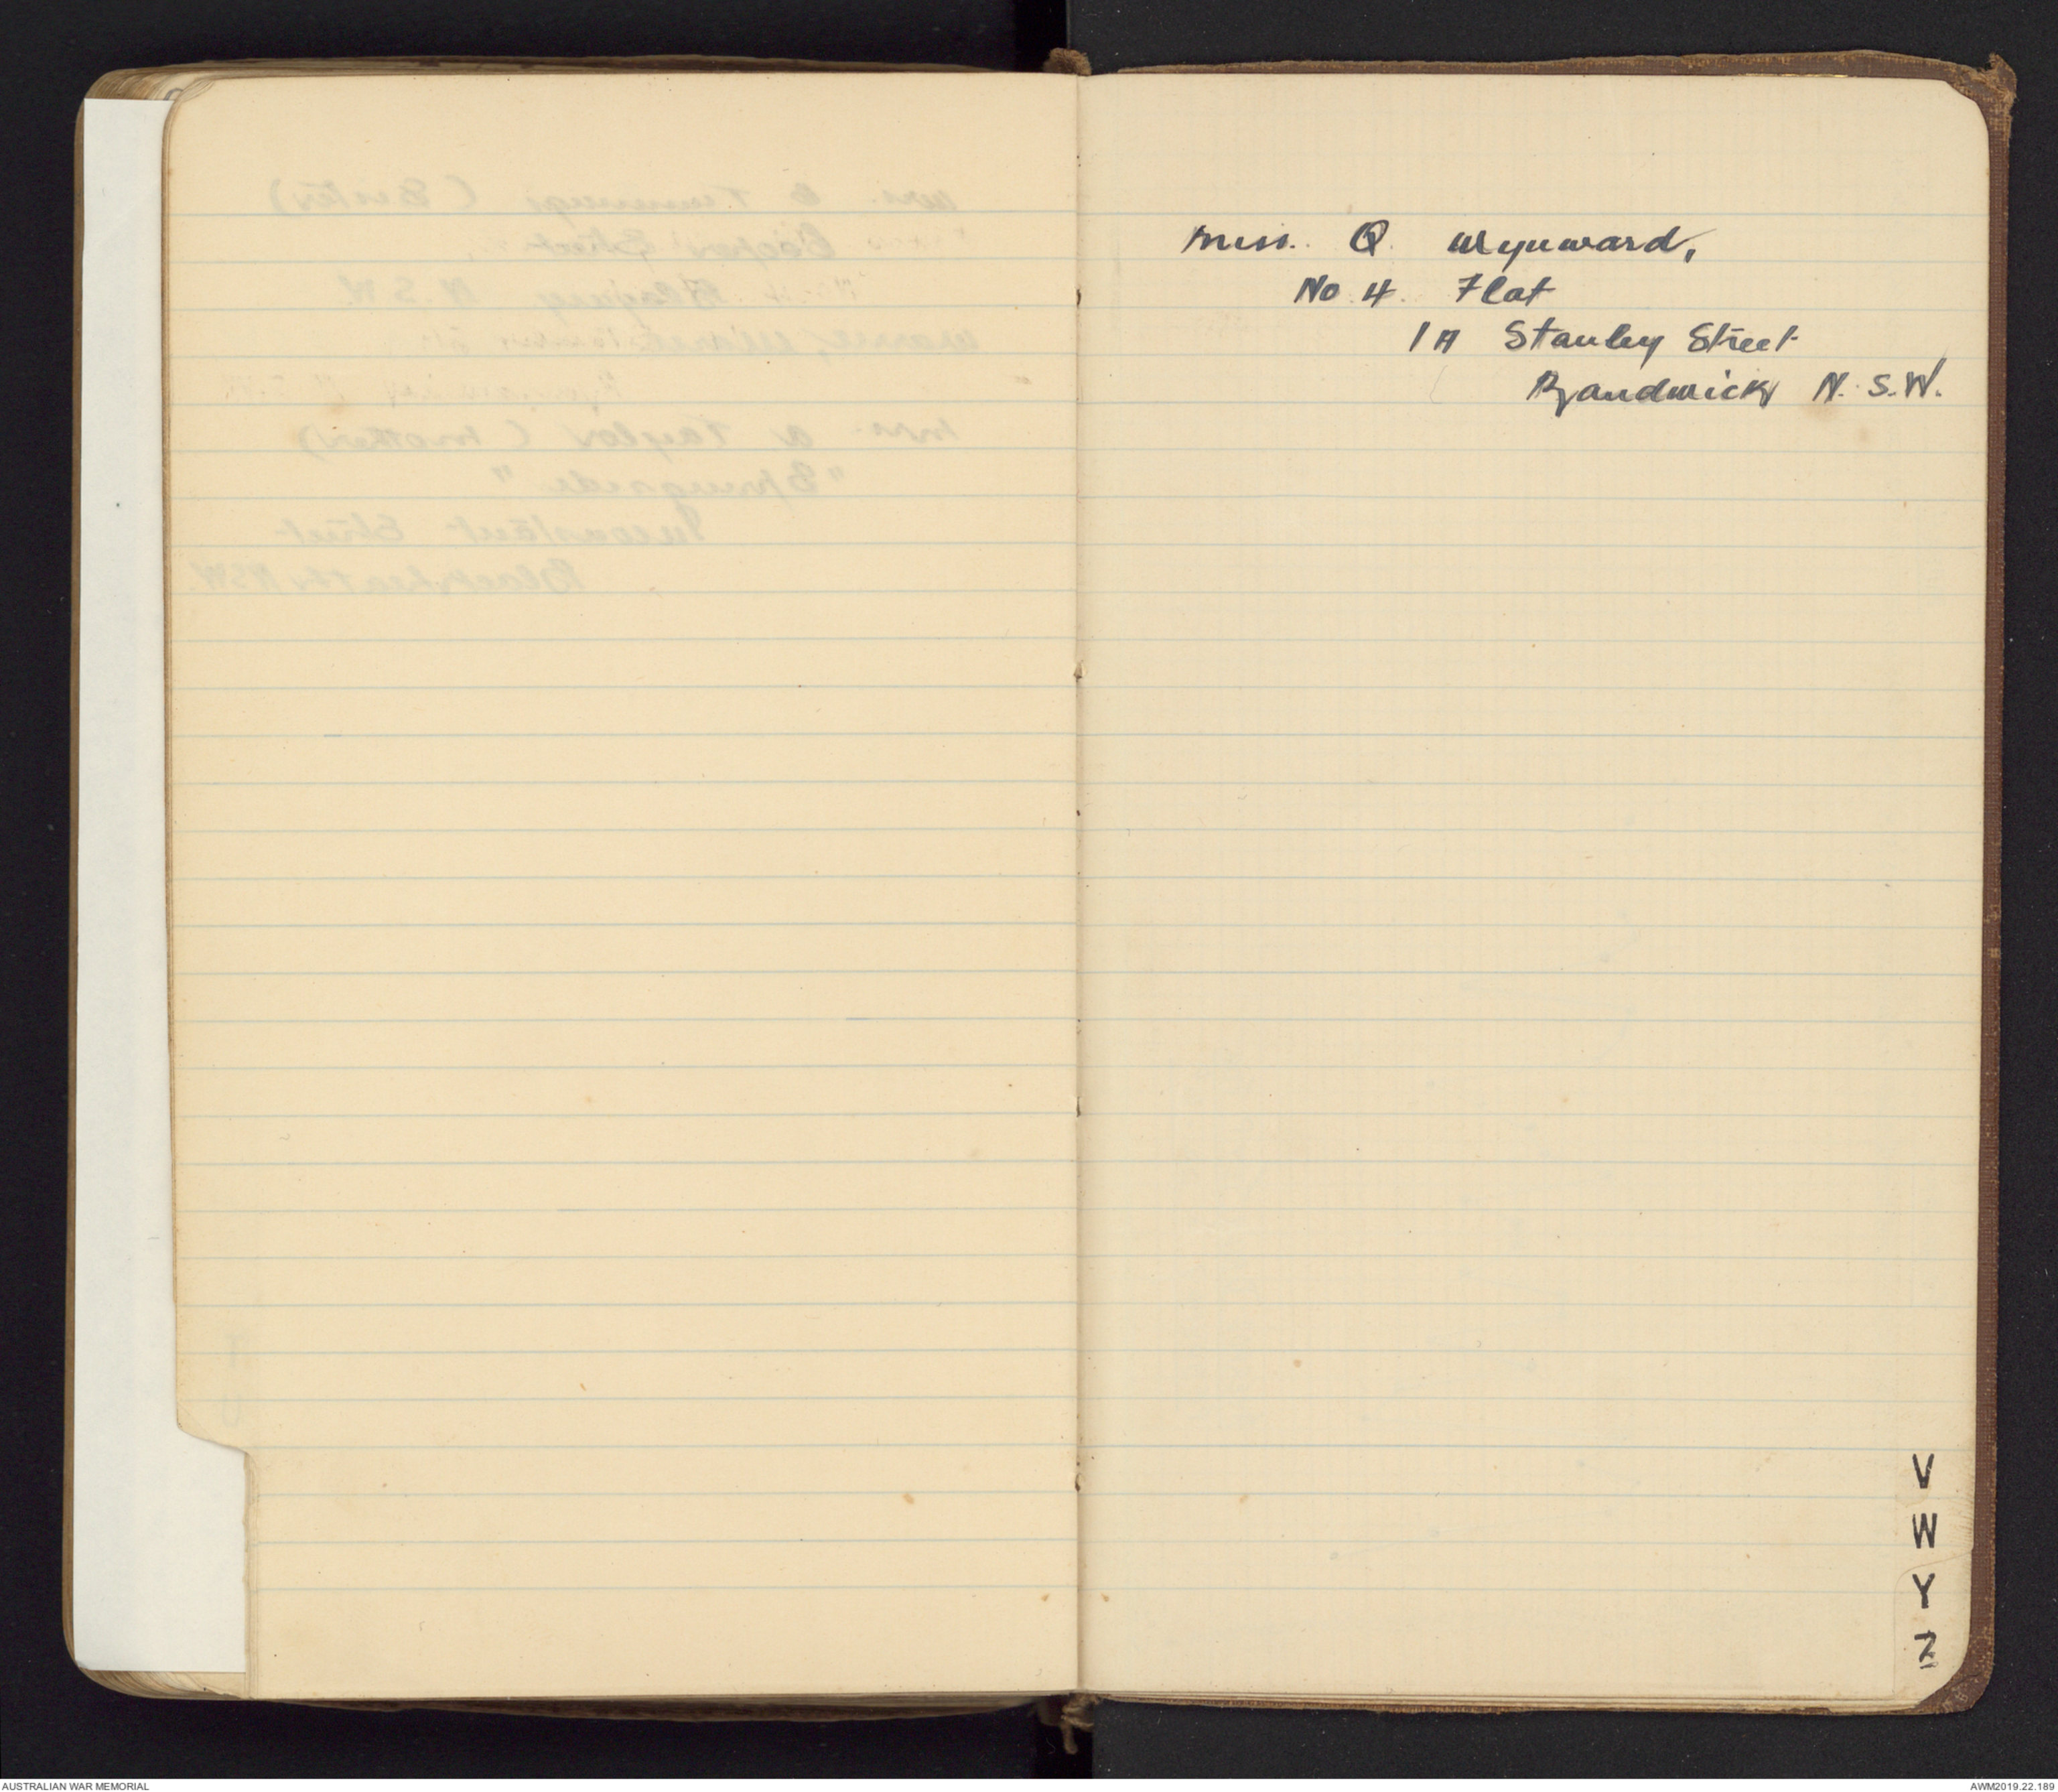 Miss. Q. Wynward,
No 4. Flat
1A Stanley Street
Randwick N.S.W.
V
W
Y
Z
AUSTRALIAN WAR MEMORIAL
AWM2019.22.189